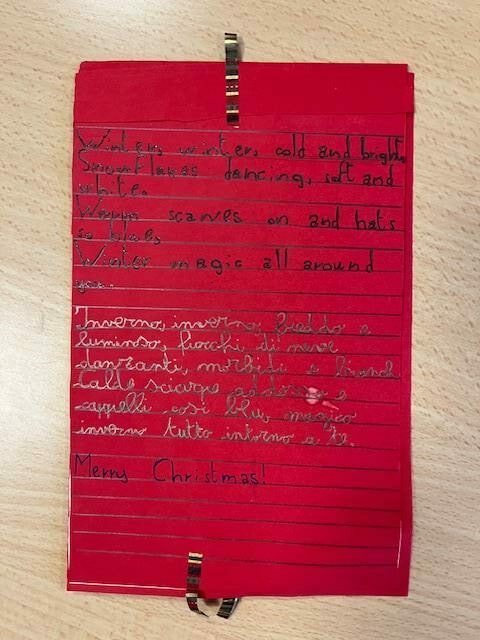 Winter, winter, cold and bright,
Snowflakes dancing, soft and
white.
Warm scarves on and hats
so blue,
Winter magic all around
you.
Inverno, inverno, freddo e
luminoso, fiocchi di neve
danzanti, morbidi e bianch
calde sciarpe addosso e
cappelli così blu, magico
inverno tutto intorno a te.
Merry Christmas!